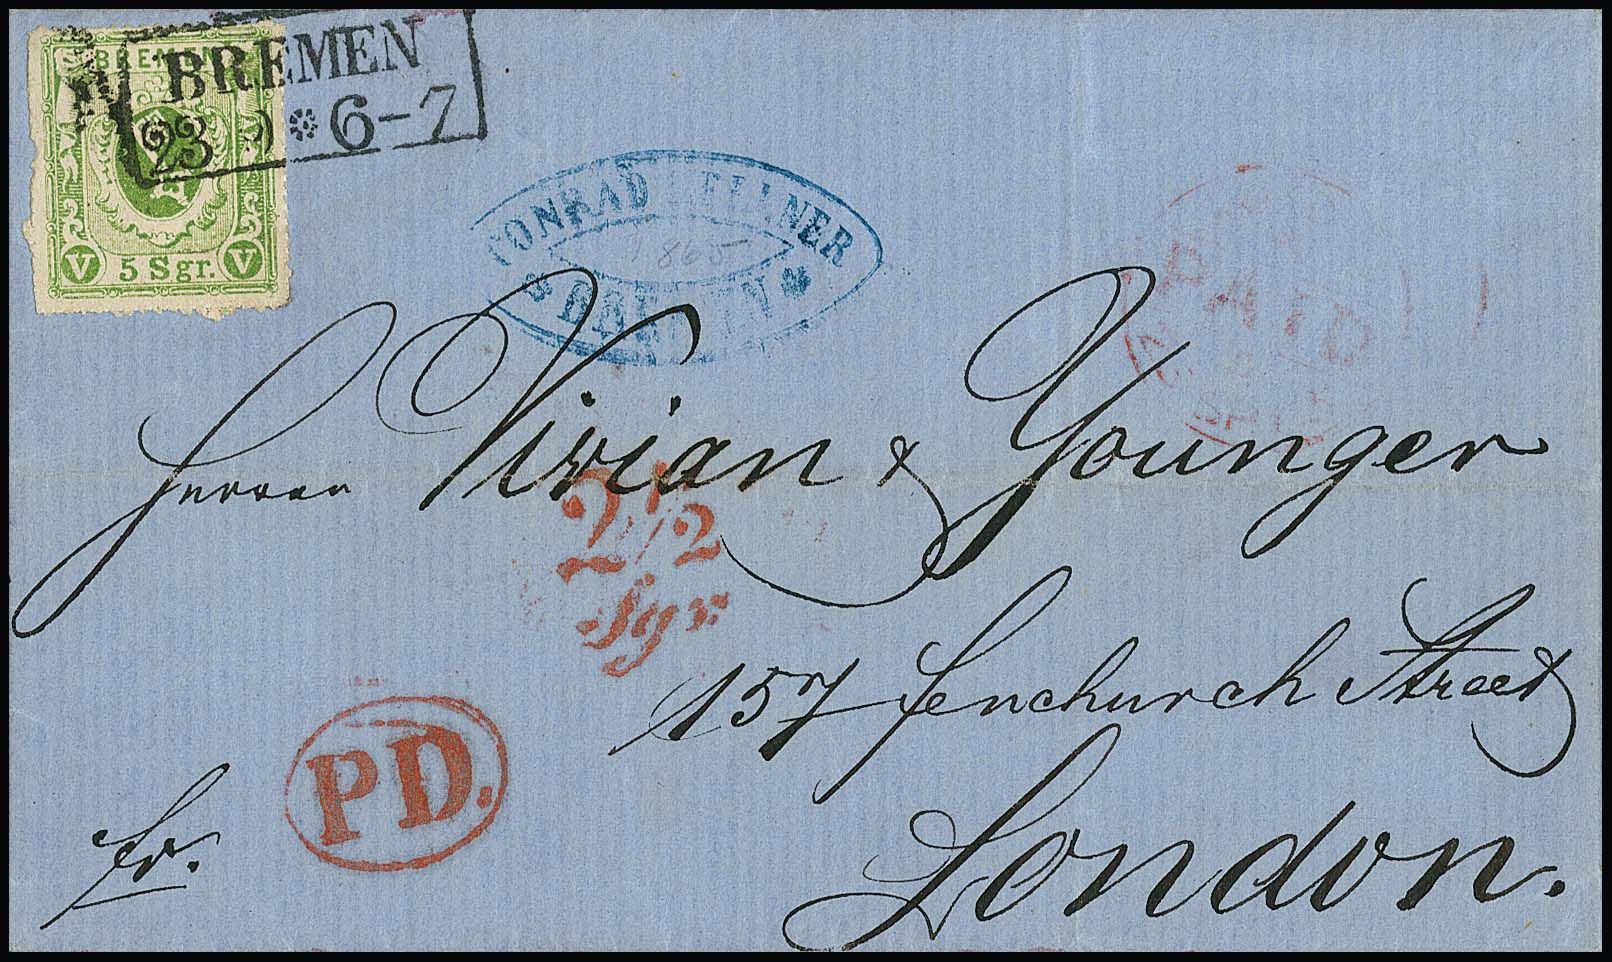 BREMEN
V 5 Sgr. V
BREMEN
23 9 * 6-7
CONRAD KELLNER
1865
BREMEN
PAID
Herren Vivian & Younger
2 1/2
Sgr.
157 Fenchurch Street
PD.
fr.
London.